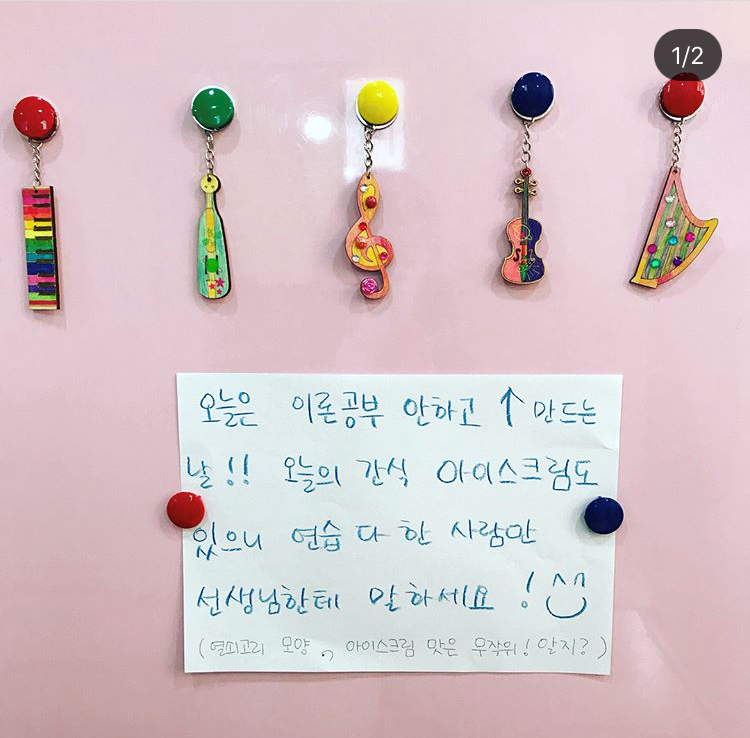 1/2
오늘은 이론공부 안하고 ↑ 만드는
날!! 오늘의 간식 아이스크림도
있으니 연습 다 한 사람만
선생님한테 말하세요! ^^
(열쇠고리 모양, 아이스크림 맛은 무작위! 알지?)